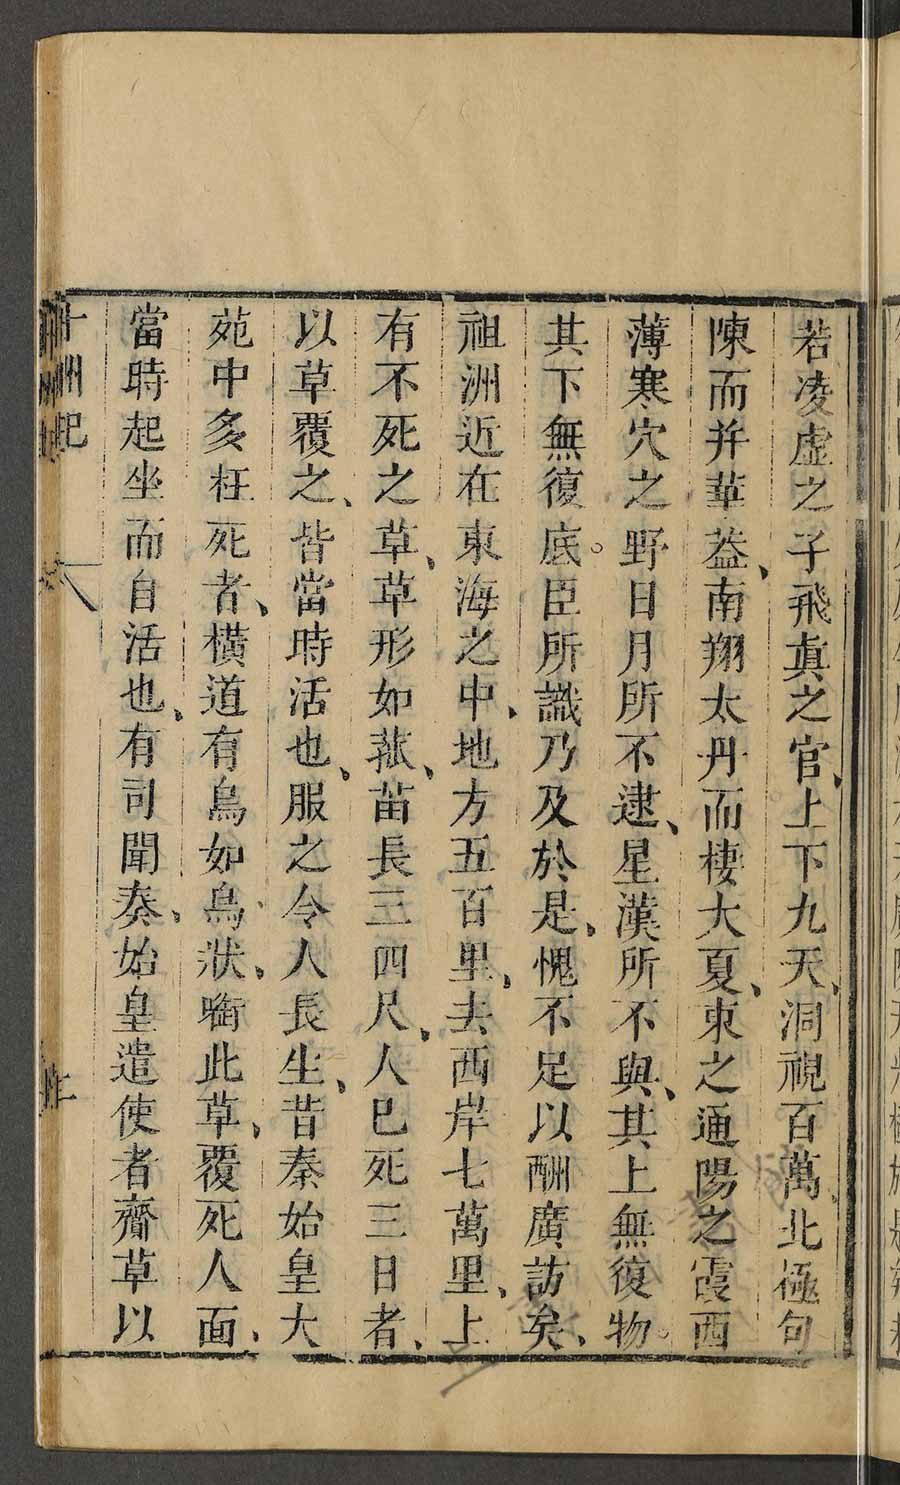 若凌虛之子飛眞之官、上下九天、洞視百萬、北極句
陳而并華葢、南翔太丹而棲大夏、東之通陽之霞西
薄寒穴之野日月所不逮、星漢所不與、其上無復物。
其下無復底。臣所識乃及於是、愧不足以酬廣訪矣、
祖洲近在東海之中、地方五百里、去西岸七萬里、上
有不死之草、草形如菰、苗長三四尺、人已死三日者、
以草覆之、皆當時活也、服之令人長生、昔秦始皇大
苑中多枉死者、橫道有鳥如烏狀、㗸此草、覆死人面、
當時起坐而自活也、有司聞奏、始皇遣使者齎草以
十洲記